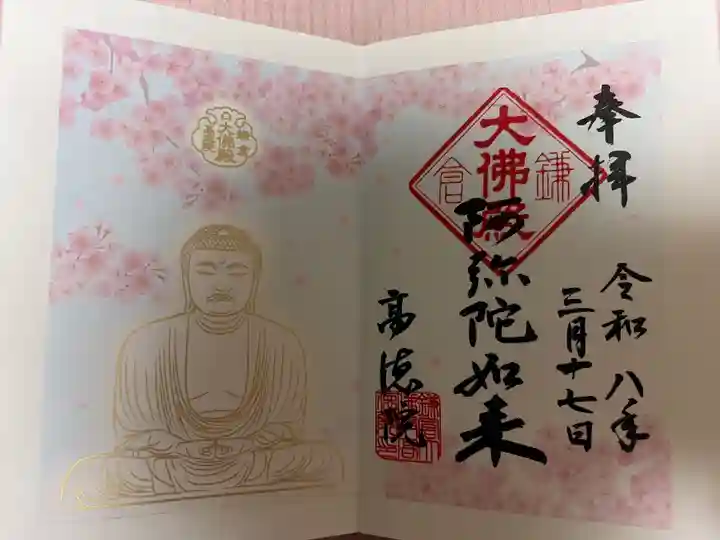 奉拝
令和八年
三月十七日
大佛殿
鎌倉
阿弥陀如来
高徳院
大佛殿